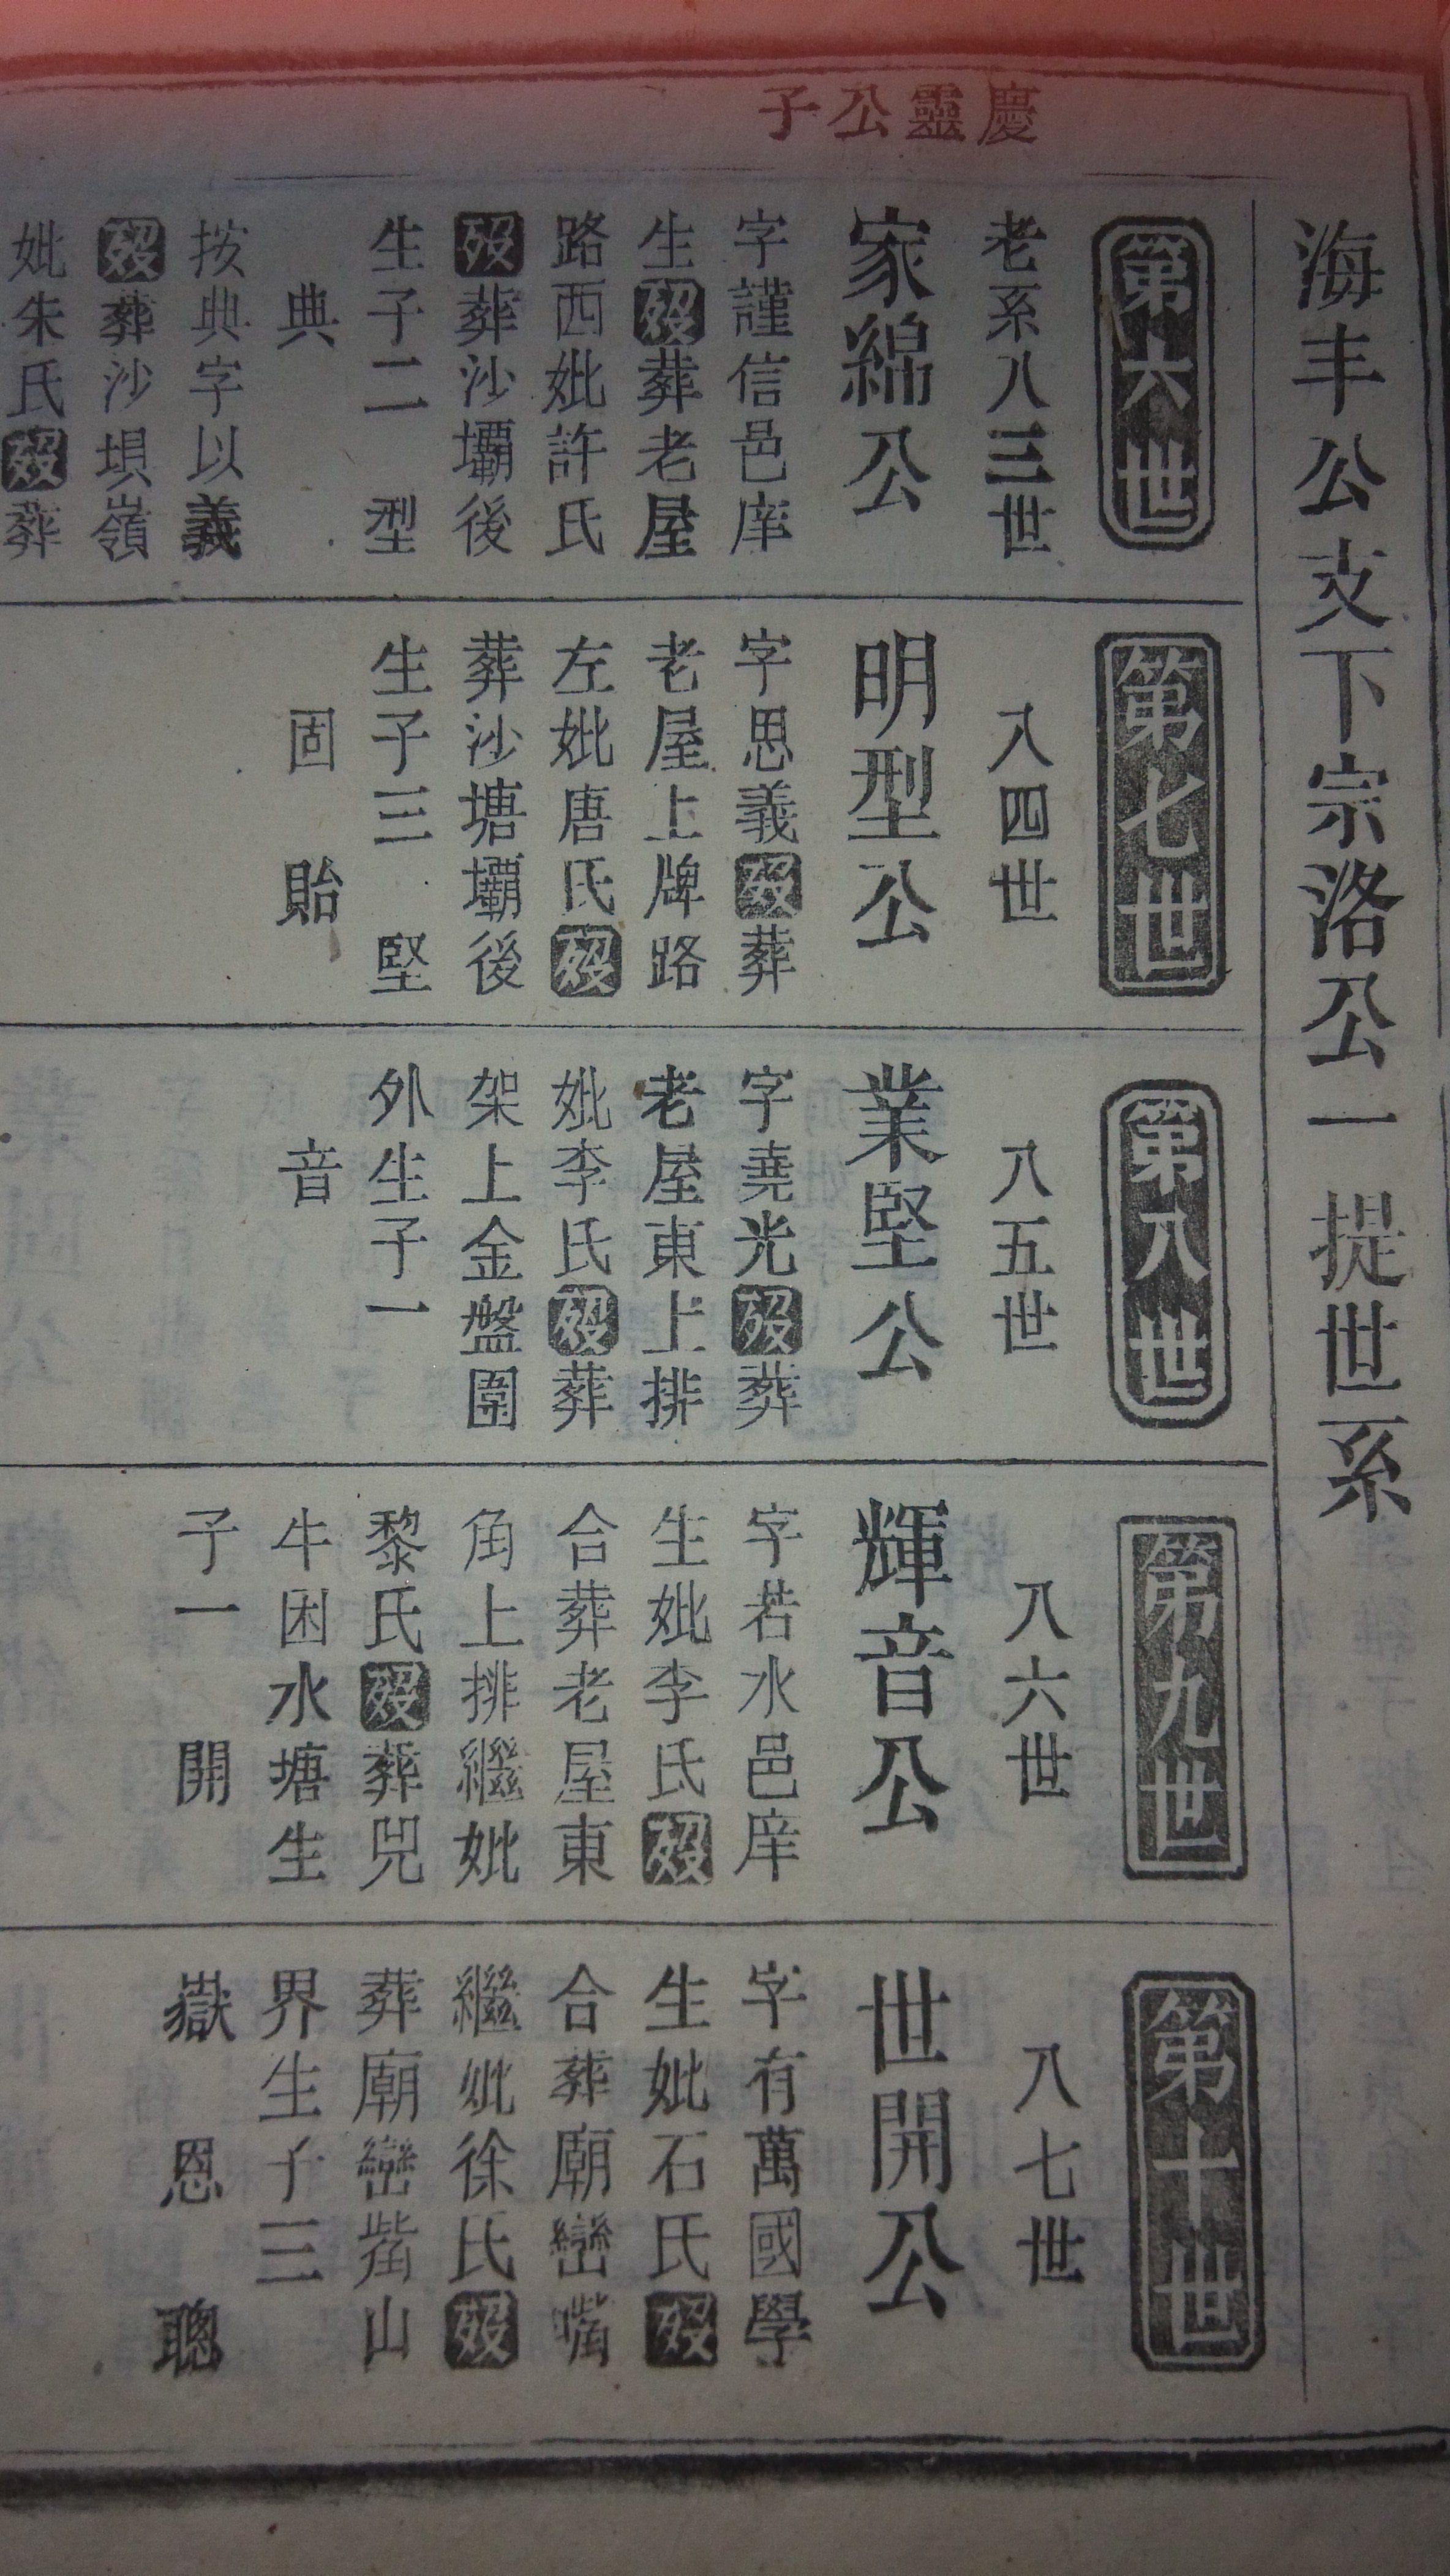 海丰公支下宗洛公一提世系
慶靈公子
第六世
老系八三世
家綿公
字謹信邑庠
生歿葬老屋
路西妣許氏
歿葬沙壩後
生子二 型
典
按典字以義
歿葬沙垻嶺
妣朱氏歿葬
第七世
八四世
明型公
字思義歿葬
老屋上牌路
左妣唐氏歿
葬沙塘壩後
生子三 堅
固 貽
第八世
八五世
業堅公
字堯光歿葬
老屋東上排
妣李氏歿葬
架上金盤圍
外生子一
音
第九世
八六世
輝音公
字若水邑庠
生妣李氏歿
合葬老屋東
角上排繼妣
黎氏歿葬兕
牛困水塘生
子一 開
第十世
八七世
世開公
字有萬國學
生妣石氏歿
合葬廟巒嘴
繼妣徐氏歿
葬廟巒嶲山
界生子三
嶽 恩 聰